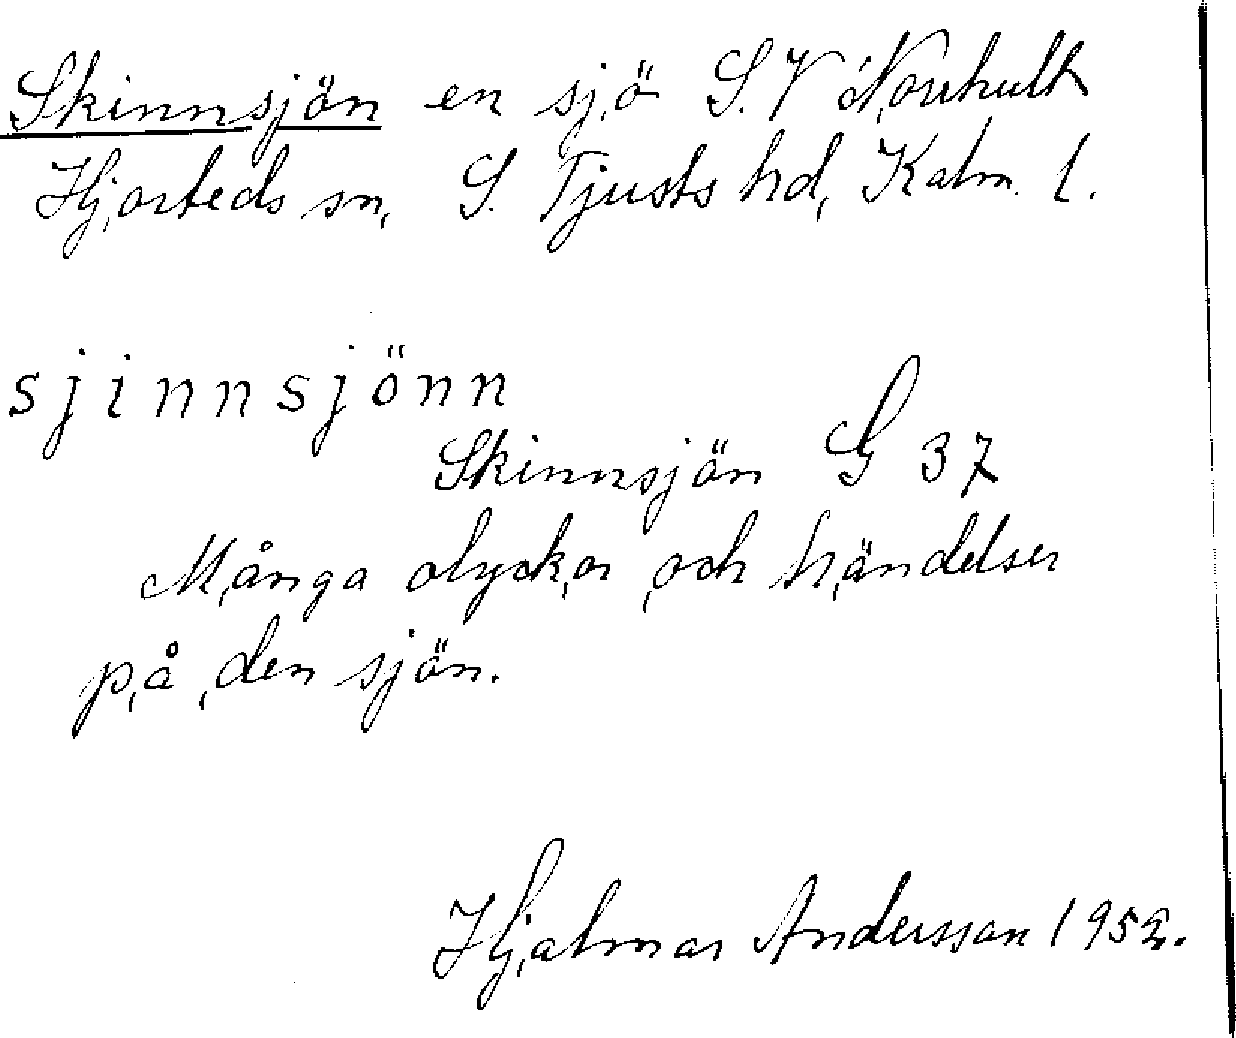 Skinnsjön en sjö S.V Norrhult
Hjorteds sn, S. Tjusts hd, Kalm. l.
sjinnsjönn
Skinnsjön G 37
Många olyckor och händelser
på den sjön.
Hjalmar Andersson 1952.